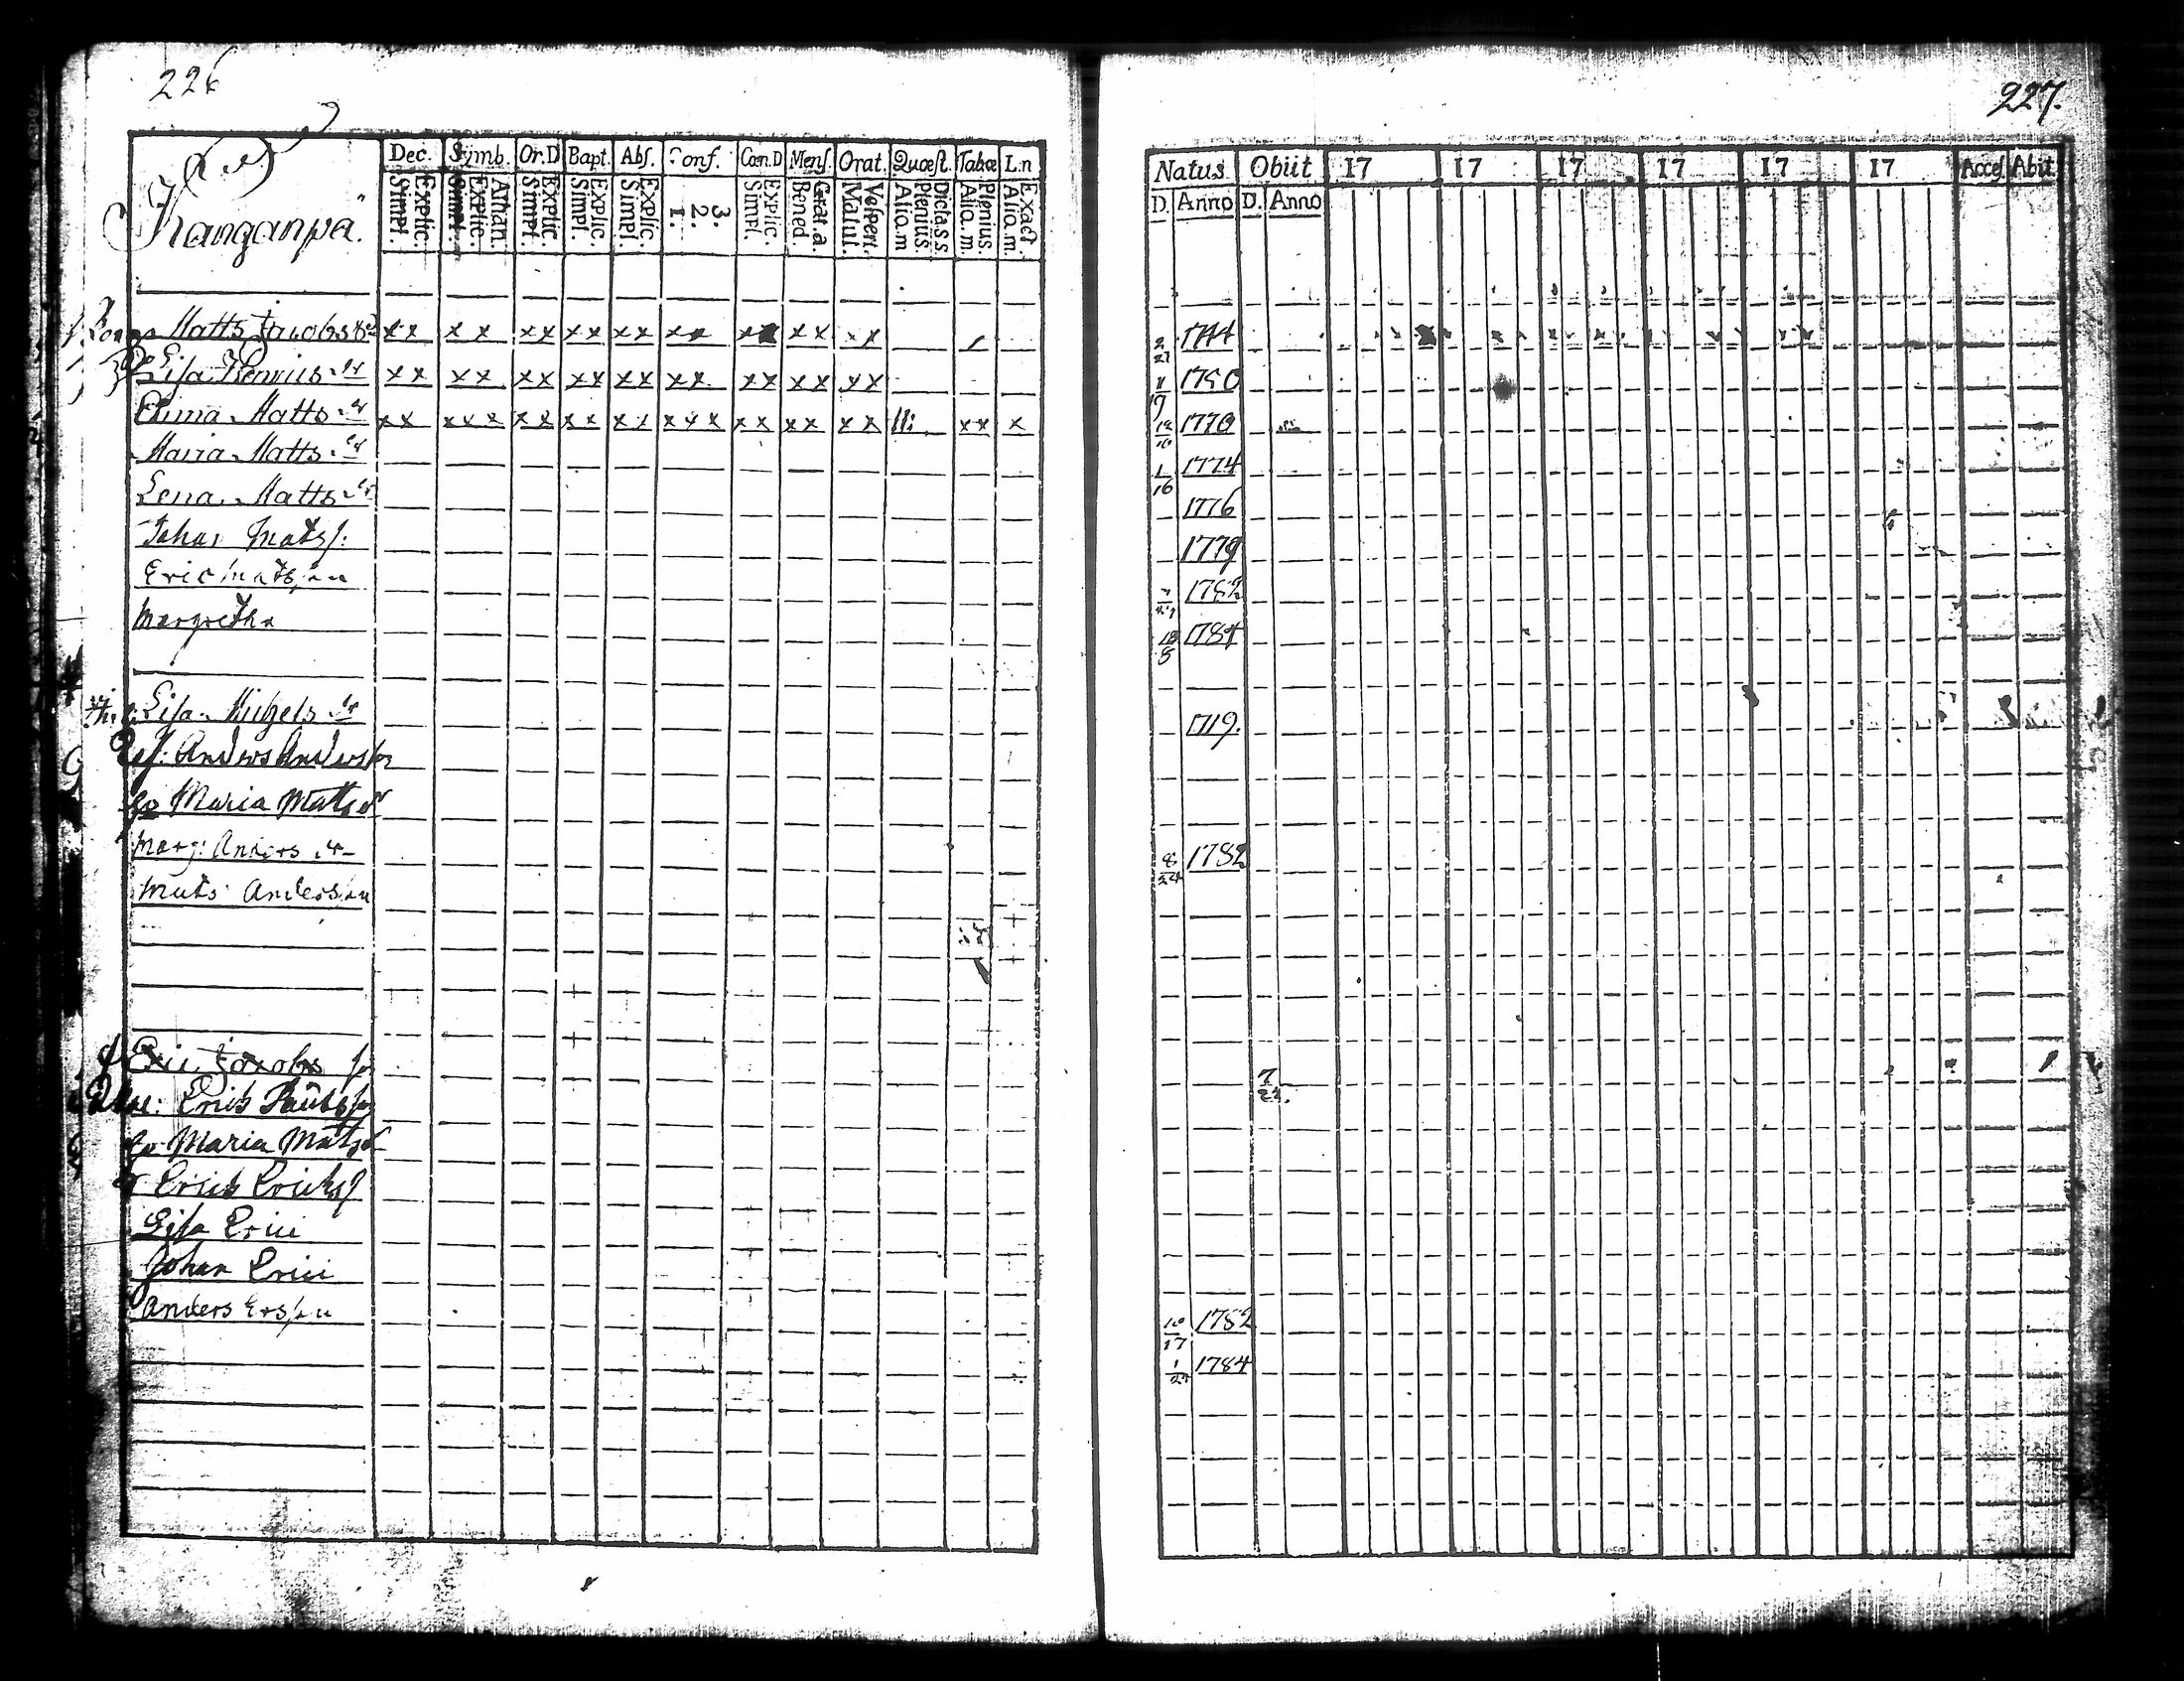 226
Dec. Symb. Or.D Bapt. Abſ. Conf. Cœn.D Menſ. Orat. Quæſt. Tabæ L.n
Simpl. Explic. Simpl. Explic. Athan. Simpl. Explic. Simpl. Explic. Simpl. Explic. 1. 2. 3. Simpl. Explic. Bened. Grat.a. Matut. Veſpert. Alio.m Plenius. Dicta.s.s Alio.m. Plenius. Alio.m. Exact.
Kanganpä.
Matts Jacobs
x x x x x x x x x x x x x x x x x x
Liſa
x x x x x x x x x x x x x x x x x x
Anna Matts dr
x x x x x x x x x x x x x x x x x x x x x x x
Maria Matts dr
Lena Matts dr
Johan Matsſ.
Eric Matsſon
Margretha
Liſa Michels dr
Anders Andersſon
Maria Mats dr
Marg: Anders dr
Mats Andersſon
Eric Jacobs ſon
Erik
Maria Mats dr
Erick Ericksſ
Liſa Erici
Johan Erici
Anders Ersſon
227.
Natus Obiit 17 17 17 17 17 17 Acceſ. Abit
D. Anno D. Anno
2/21 1744
11/19 1750
1770
1/16 1774
1776
1779
1782
12/8 1784
1719.
8/24 1782
7/24.
10/17 1782
1/24 1784